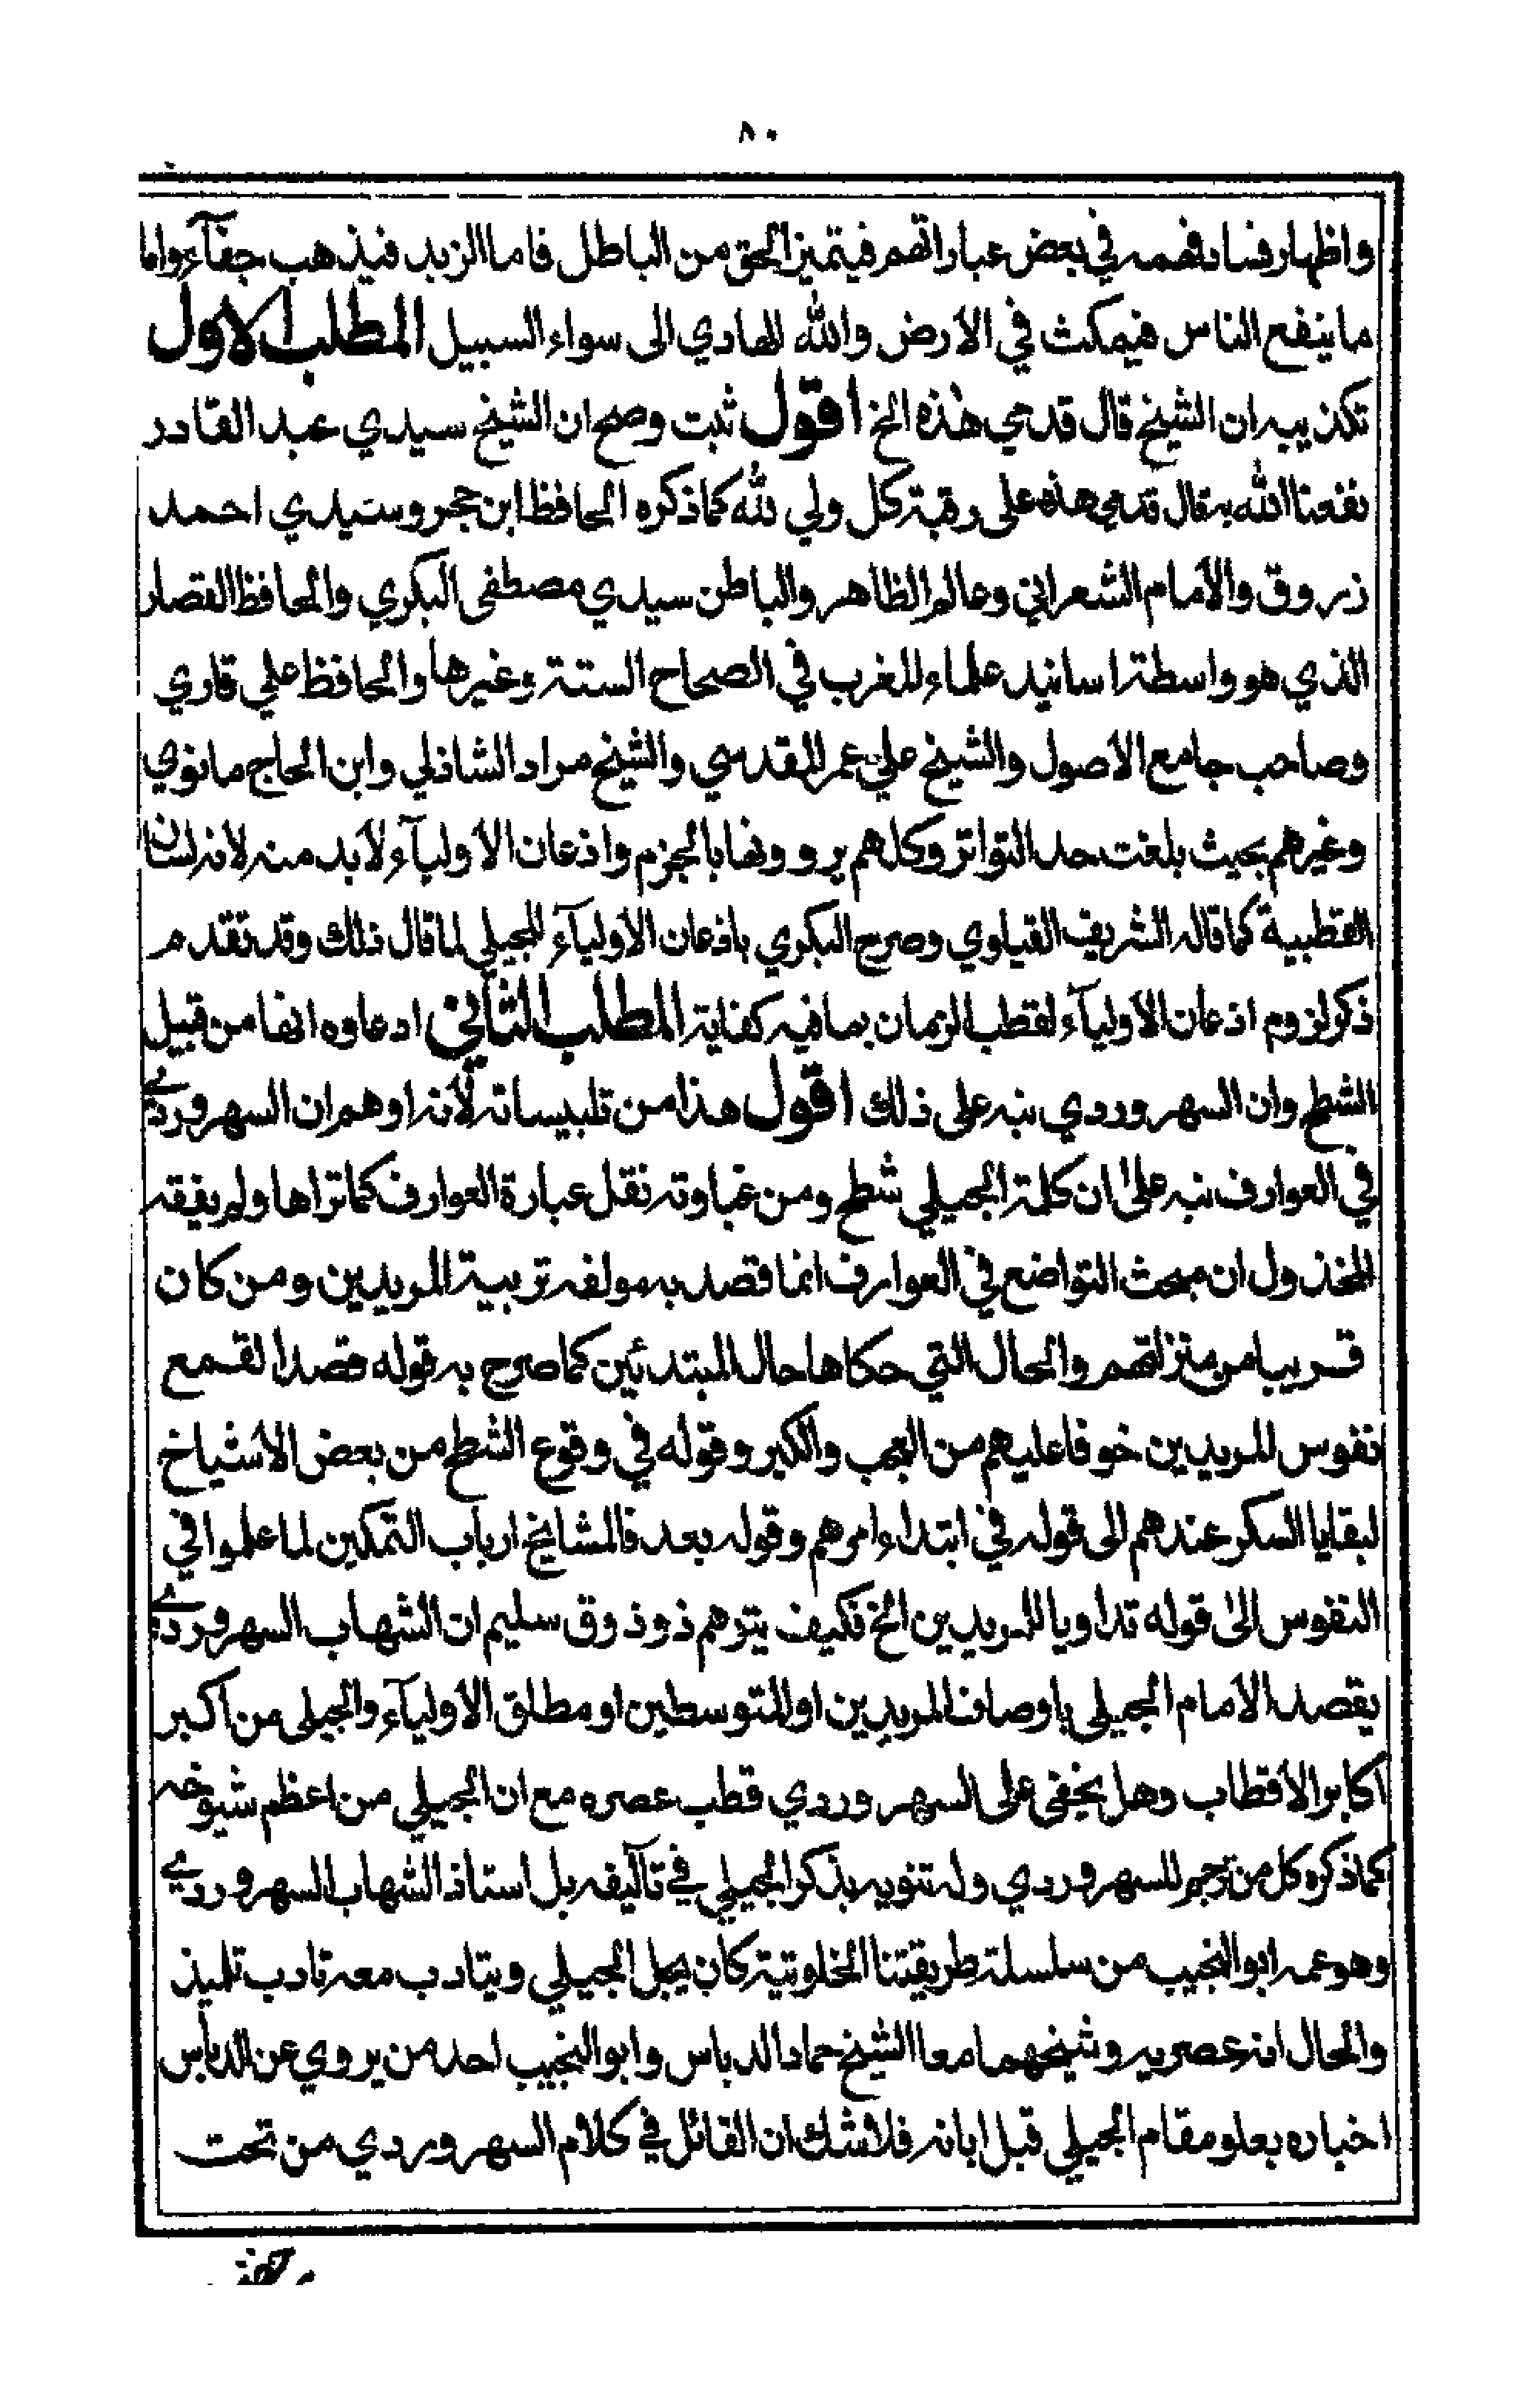 ٨٠
واظهار فساد فهمه في بعض عباراتهم فيتميز الحق من الباطل فاما الزبد فيذهب جفآء واما
ما ينفع الناس فيمكث في الارض والله الهادي الى سواء السبيل المطلب الاول
تكذيبه ان الشيخ قال قدمي هذه الخ اقول ثبت وصح ان الشيخ سيدي عبد القادر
نفعنا الله به قال قدمي هذه على رقبة كل ولي لله كما ذكره الحافظ ابن حجر وسيدي احمد
زروق والامام الشعراني وعالم الظاهر والباطن سيدي مصطفى البكري والحافظ القصار
الذي هو واسطة اسانيد علماء المغرب في الصحاح الستة وغيرها والحافظ علي قاري
وصاحب جامع الاصول والشيخ علي عمر المقدسي والشيخ مراد الشاذلي وابن الحاج مانوي
وغيرهم بحيث بلغت حد التواتر وكلهم يروونها بالجزم واذعان الاوليآء لابد منه لانه لسان
القطبية كما قاله الشريف القياوي وصرح البكري باذعان الاوليآء للجيلي لما قال ذلك وقد تقدم
ذكر لزوم اذعان الاوليآء لقطب الزمان بما فيه كفاية المطلب الثاني ادعاوه انها من قبيل
الشطح وان السهروردي نبه على ذلك اقول هذا من تلبيساته لأنه اوهم ان السهروردي
في العوارف نبه على ان كلمة الجيلي شطح ومن غباوته نقل عبارة العوارف كما تراها ولم يفقه
المخذول ان مبحث التواضع في العوارف انما قصد به مولفه تربية المريدين ومن كان
قريبا من منزلتهم والحال التي حكاها حال المبتدئين كما صرح به قوله قصدا لقمع
نفوس المريدين خوفا عليهم من العجب والكبر وقوله في وقوع الشطح من بعض الاشياخ
لبقايا السكر عندهم الى قوله في ابتداء امرهم وقوله بعد فالمشايخ ارباب التمكين لما علموا في
النفوس الى قوله تداويا للمريدين الخ فكيف يتوهم ذو ذوق سليم ان الشهاب السهروردي
يقصد الامام الجيلي باوصاف المريدين او المتوسطين او مطلق الاوليآء والجيلي من اكبر
اكابر الاقطاب وهل يخفى على السهروردي قطب عصره مع ان الجيلي من اعظم شيوخه
كما ذكره كل من ترجم للسهروردي وله تنويه بذكر الجيلي في تآليفه بل استاذ الشهاب السهروردي
وهو عمه ابو النجيب من سلسلة طريقتنا الخلوتية كان يجل الجيلي ويتادب معه تادب تلميذ
والحال انه عصريه وشيخهما معا الشيخ حماد الدباس وابو النجيب احد من يروي عن الدباس
اخباره بعلو مقام الجيلي قبل ابانه فلا شك ان القائل في كلام السهروردي من تحت